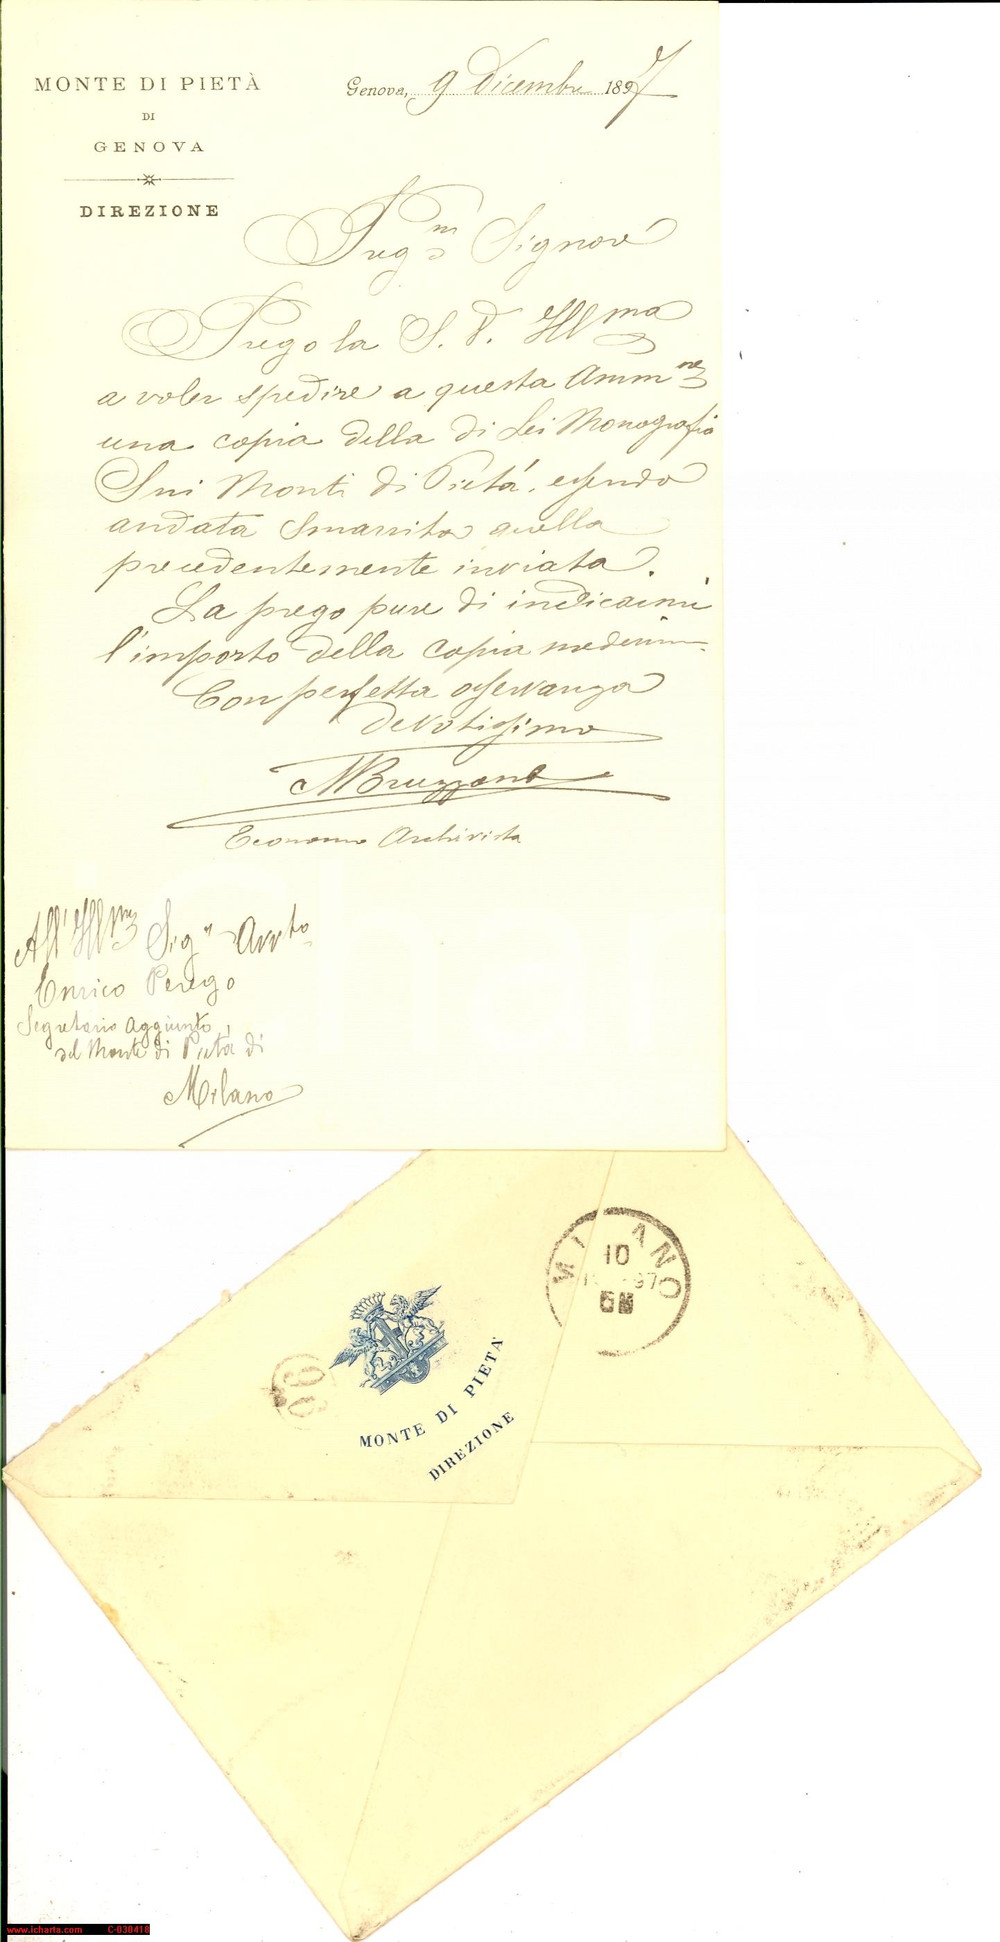 MONTE DI PIETÀ
DI
GENOVA
DIREZIONE
Genova, 9 Dicembre 1897
Preg.mo Signore
Prego la S. V. Ill.ma
a voler spedire a questa Amm.ne
una copia della di Lei Monografia
Sui Monti di Pietà, essendo
andata smarrita quella
precedentemente inviata.
La prego pure di indicarmi
l'importo della copia medesima.
Con perfetta osservanza
devotissimo
M Bruzzone
Economo Archivista
All'Ill.mo Sig.r Avv.to
Enrico Perego
Segretario Aggiunto
del Monte di Pietà di
Milano
MILANO
10
97
MONTE DI PIETÀ
DIREZIONE
www.icharta.com C-830418